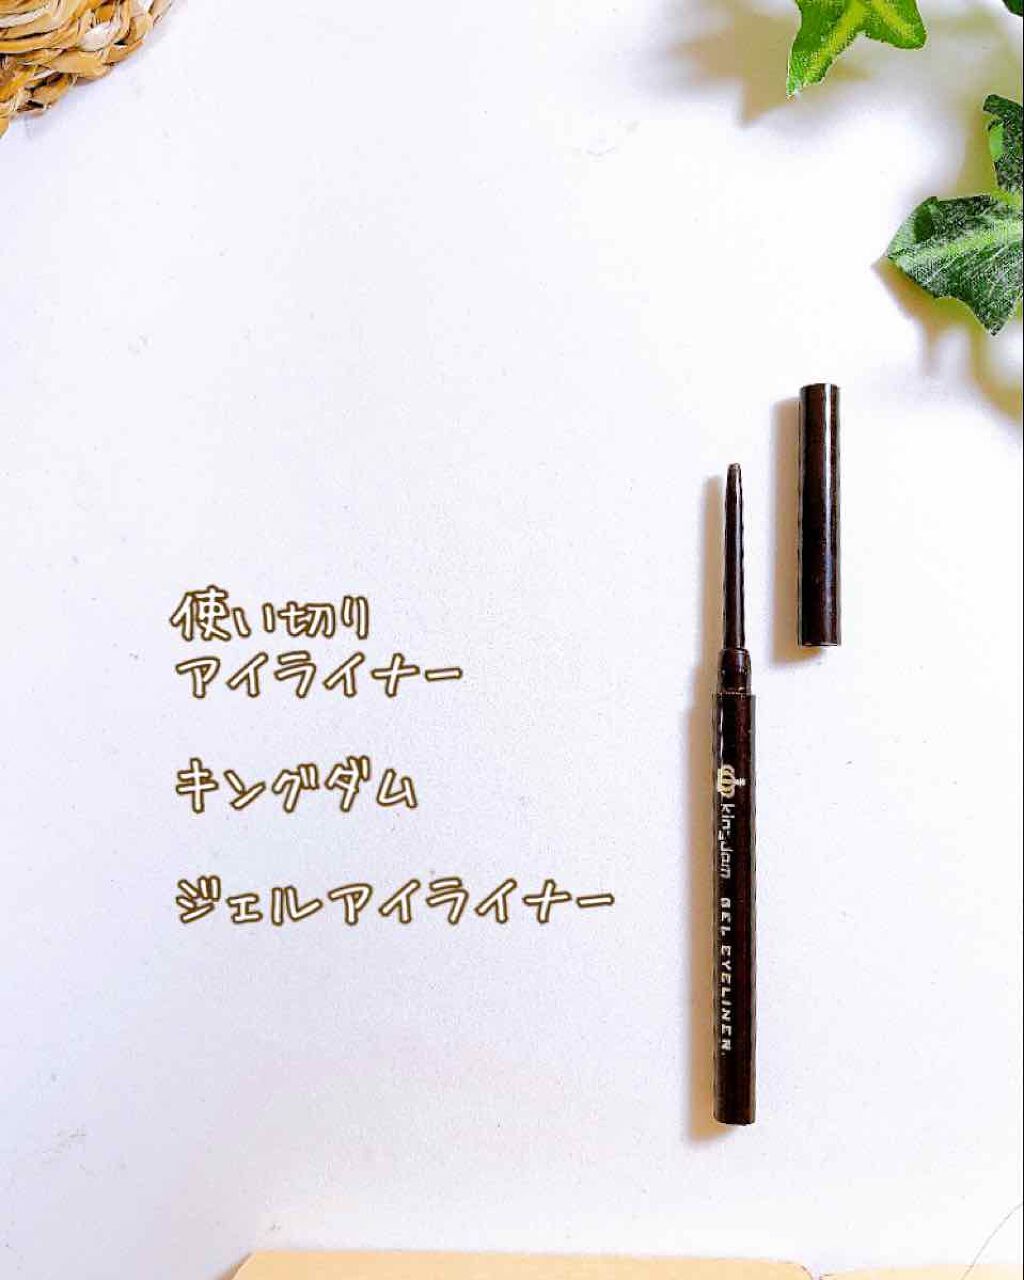 使い切り
アイライナー
キングダム
ジェルアイライナー
kingdom GEL EYELINER